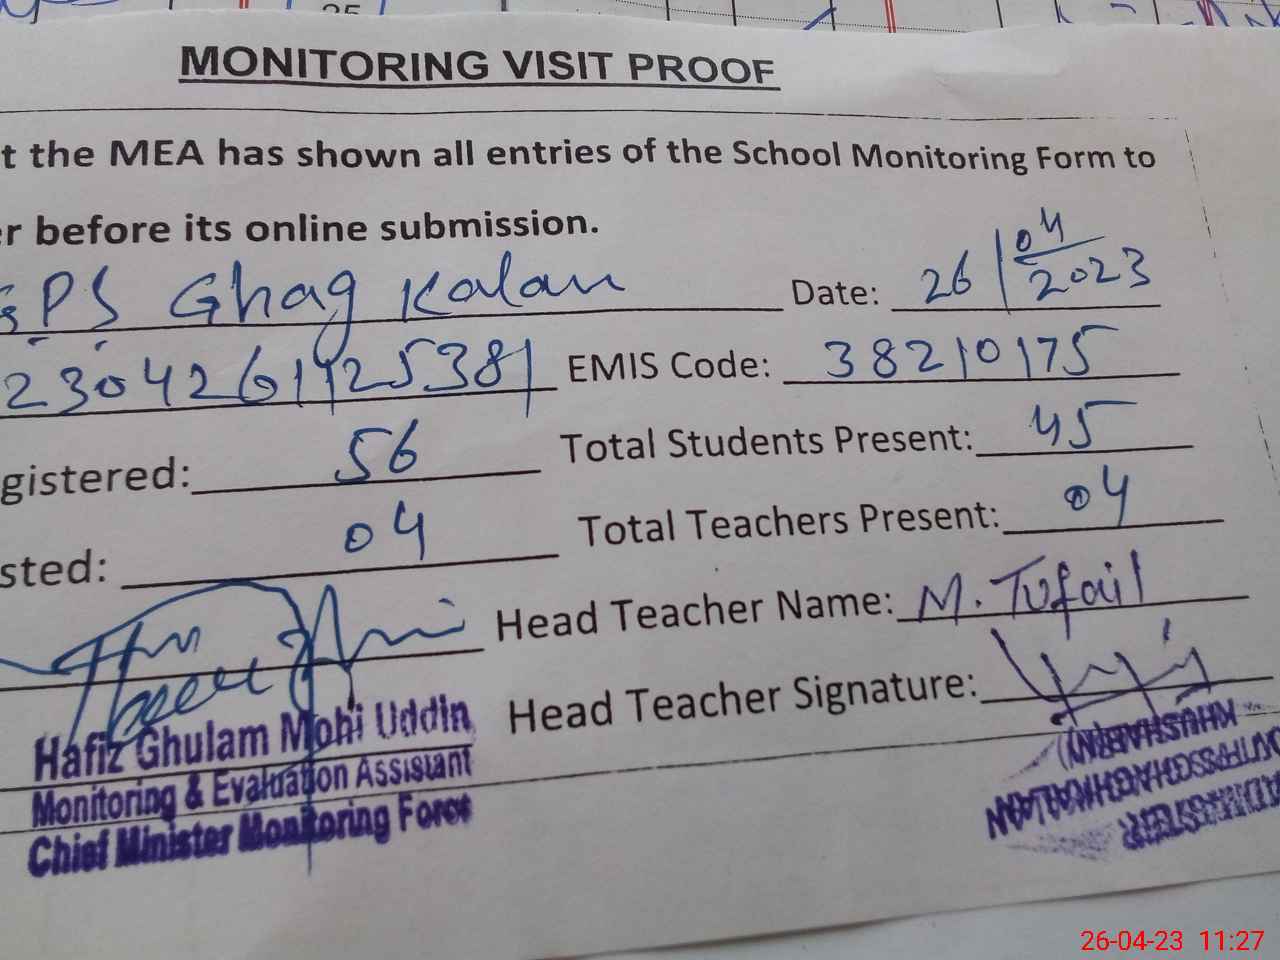 MONITORING VISIT PROOF
t the MEA has shown all entries of the School Monitoring Form to
er before its online submission.
GPS Ghag Kalan Date: 26/04/2023
2304261125381 EMIS Code: 38210175
gistered: 56 Total Students Present: 45
sted: 04 Total Teachers Present: 04
Head Teacher Name: M. Tufail
Head Teacher Signature:
Hafiz Ghulam Mohi Uddin
Monitoring & Evaluation Assistant
Chief Minister Monitoring Force
KHUSHAB
26-04-23 11:27